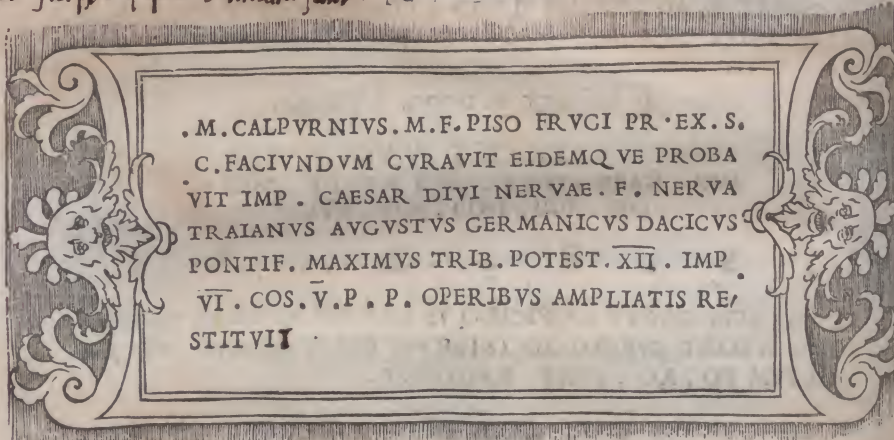 . M. CALPVRNIVS. M. F. PISO FRVGI PR · EX. S.
C. FACIVNDVM CVRAVIT EIDEMQVE PROBA
VIT IMP . CAESAR DIVI NERVAE . F. NERVA
TRAIANVS AVGVSTVS GERMANICVS DACICVS
PONTIF. MAXIMVS TRIB. POTEST. X̅I̅I̅ . IMP .
V̅I̅ . COS. V̅. P . P. OPERIBVS AMPLIATIS RE/
STITVIT